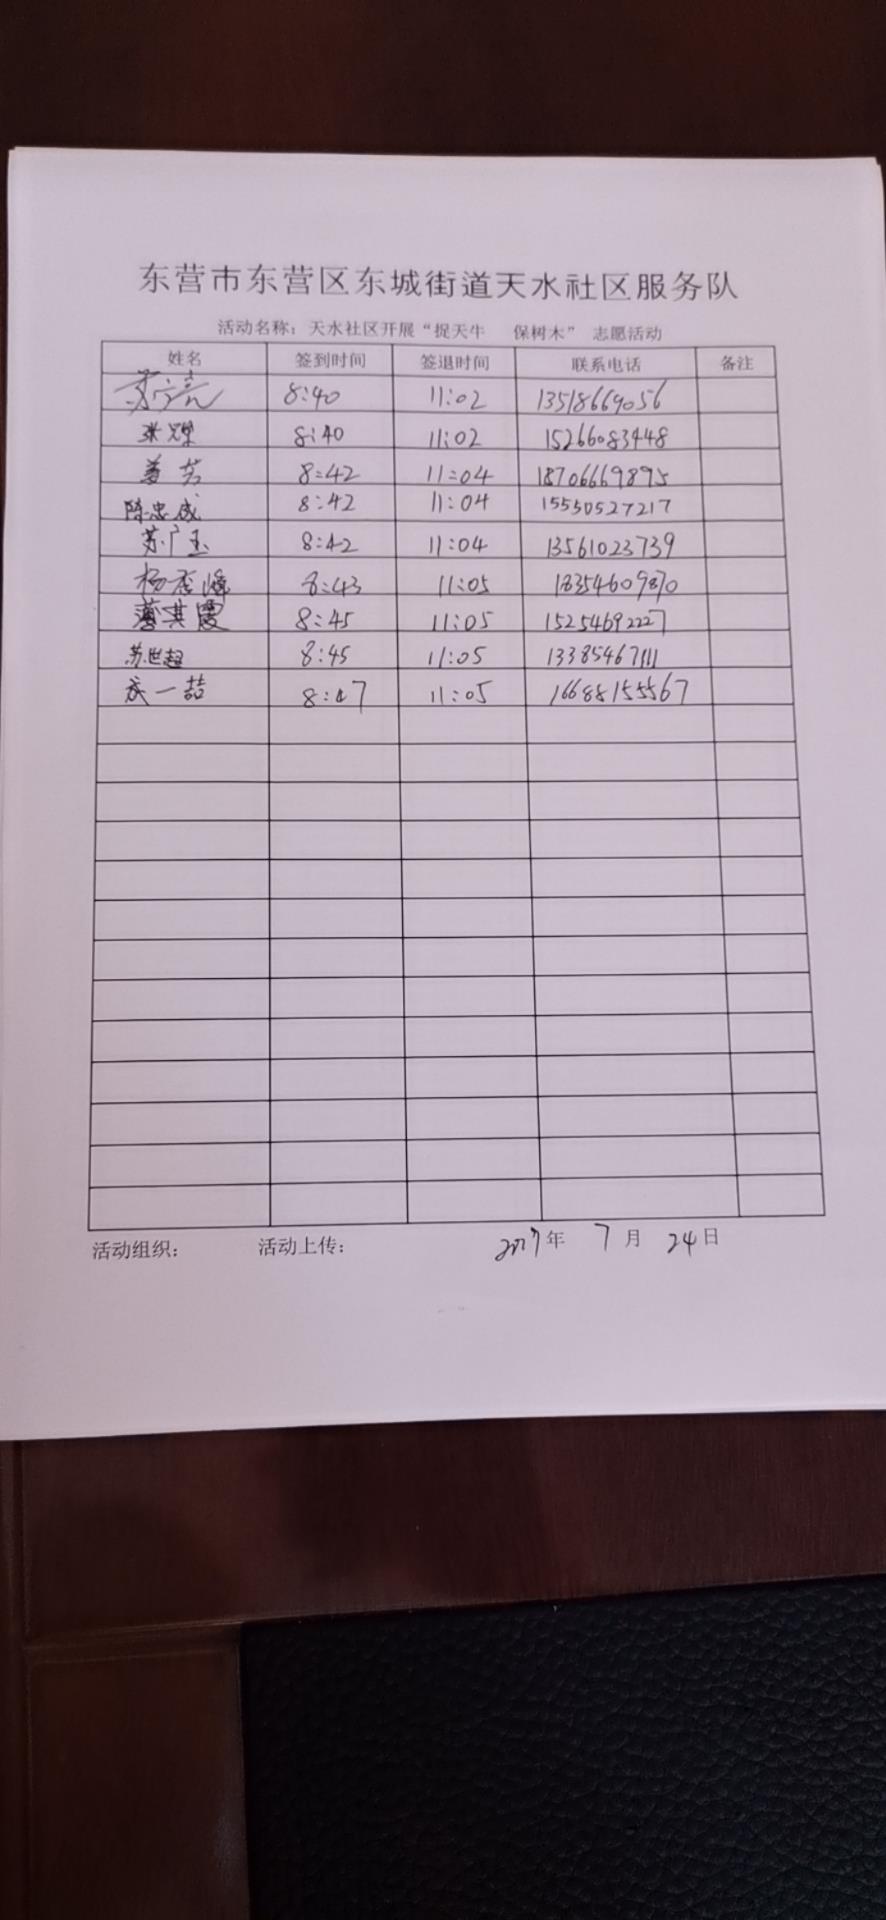 东营市东营区东城街道天水社区服务队
活动名称：天水社区开展“捉天牛 保树木” 志愿活动
姓名 签到时间 签退时间 联系电话 备注
8:40 11:02 13518669056
8:40 11:02 15266083448
8:42 11:04 18706669895
陈忠成 8:42 11:04 15550527217
苏广玉 8:42 11:04 13561023739
8:43 11:05 18354609870
8:45 11:05 15254692227
苏世超 8:45 11:05 13385467111
8:47 11:05 16688155567
活动组织： 活动上传： 年 7 月 24 日